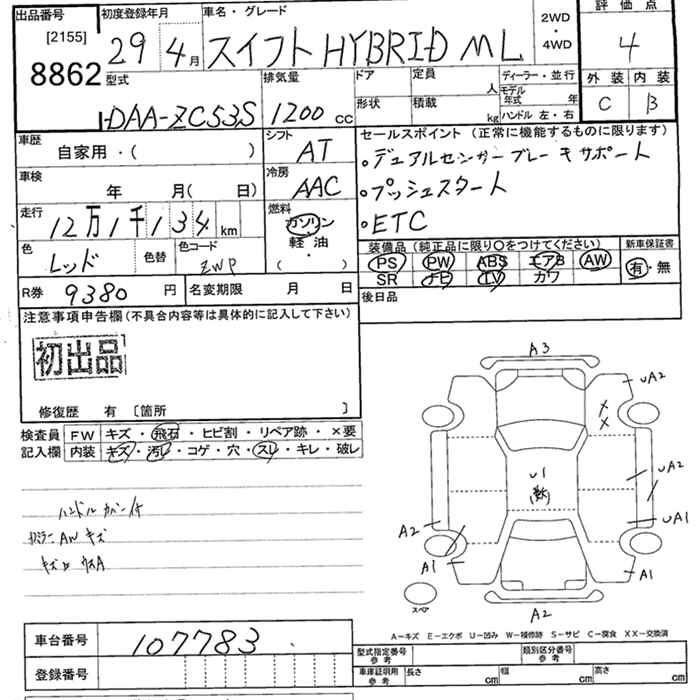 出品番号 [2155] 8862
初度登録年月 29年 4月
車名・グレード スイフト HYBRID ML
2WD・4WD
評価点 4
型式 DAA-ZC53S
排気量 1200 cc
ドア 形状
定員 人
積載 kg
ディーラー・並行
モデル年式 年
ハンドル 左・右
外装 C
内装 B
車歴 自家用・( )
シフト AT
セールスポイント (正常に機能するものに限ります)
•デュアルセンサーブレーキサポート
•プッシュスタート
•ETC
車検 年 月( 日)
冷房 AAC
走行 12万1千134 km
燃料 ガソリン 軽油 ・ ( )
色 レッド
色替
色コード ZWP
装備品(純正品に限り○をつけてください)
新車保証書
PS PW ABS エアB AW
有・無
SR ナビ TV カワ
R券 9380 円
名変期限 月 日
後日品
注意事項申告欄(不具合内容等は具体的に記入して下さい)
初出品
修復歴 有 [箇所 ]
検査員記入欄
FW キズ・飛石・ヒビ割・リペア跡・×要
内装 キズ・汚レ・コゲ・穴・スレ・キレ・破レ
ハンドルカバー付
AWキズ
A3
UA2
XX
U1
UA2
UA1
A2
A1
A1
A2
スペア
A－キズ E－エクボ U－凹み W－補修跡 S－サビ C－腐食 XX－交換済
車台番号 107783
登録番号
型式指定番号 参考
類別区分番号 参考
車庫証明用 参考 長さ cm 幅 cm 高さ cm